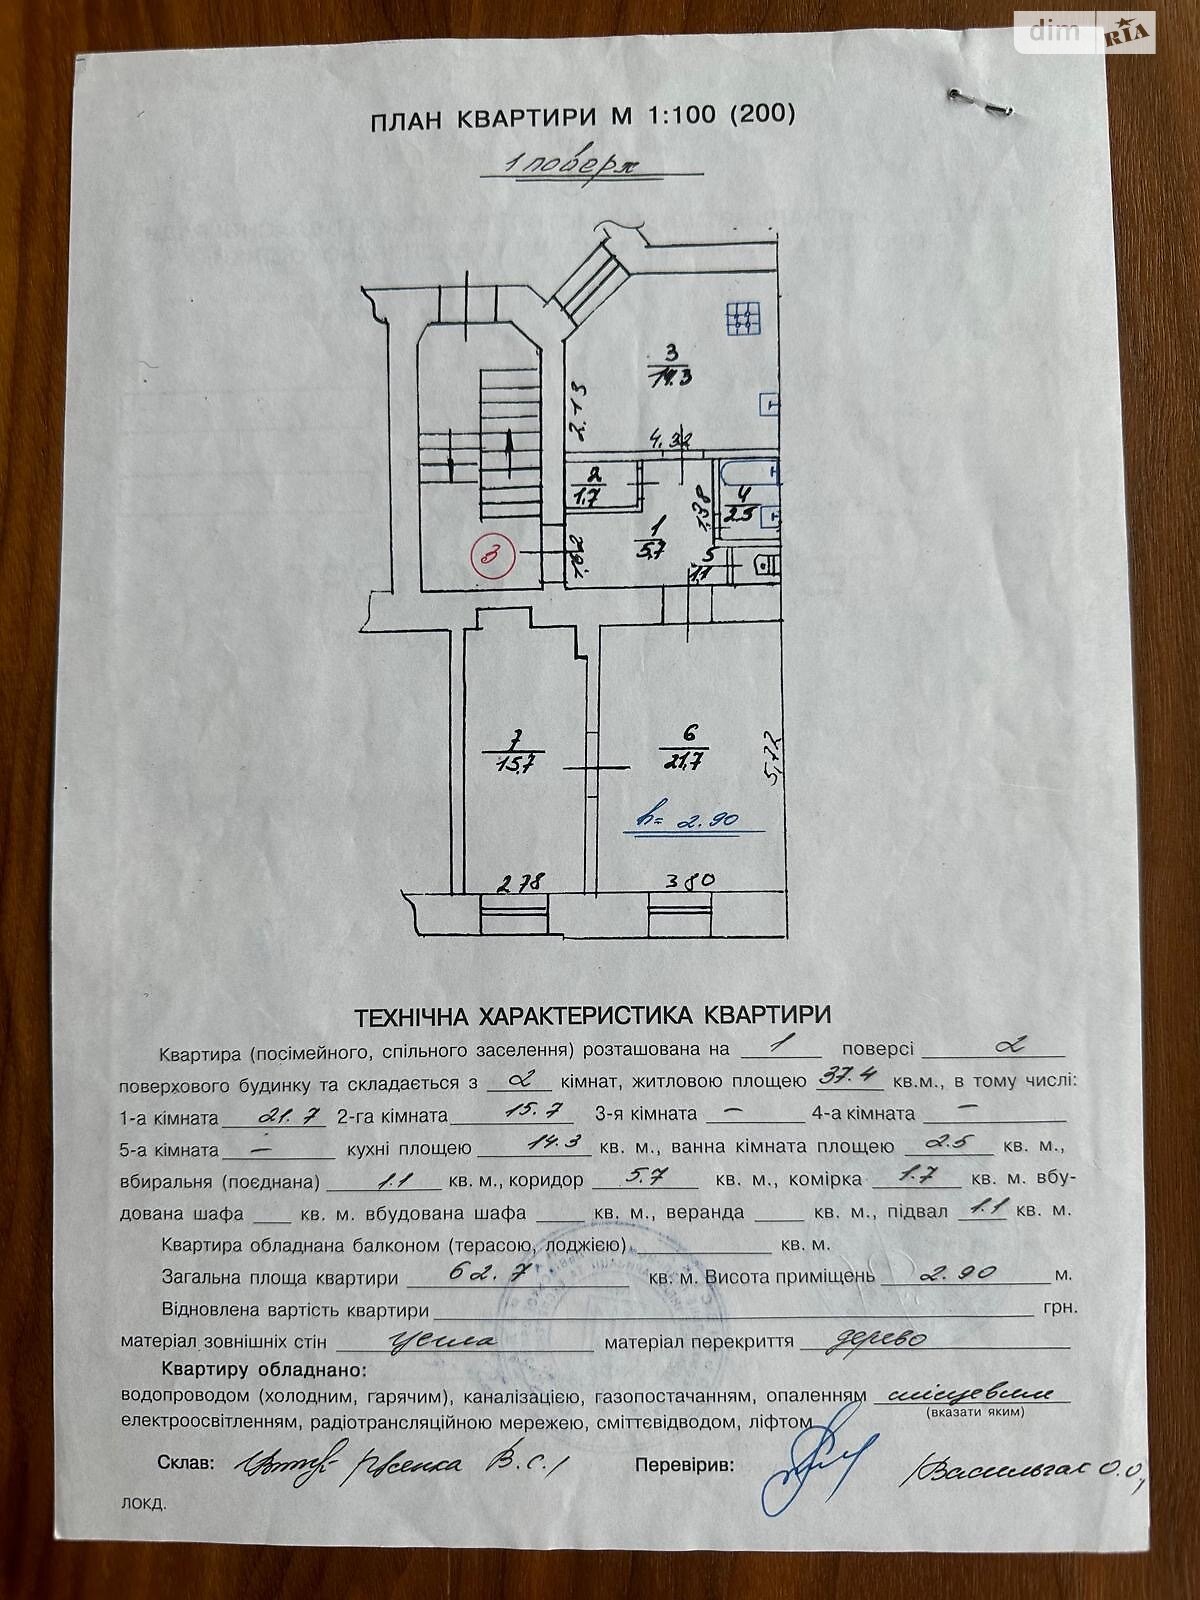 dim RIA
ПЛАН КВАРТИРИ М 1:100 (200)
1 поверх
3
14.3
2.13
4.32
2
1.7
4
2.5
1.38
1
5.7
5
1.1
3
7
15.7
6
21.7
5,72
h= 2.90
278
380
ТЕХНІЧНА ХАРАКТЕРИСТИКА КВАРТИРИ
Квартира (посімейного, спільного заселення) розташована на 1 поверсі 2
поверхового будинку та складається з 2 кімнат, житловою площею 37.4 кв.м., в тому числі:
1-а кімната 21.7 2-га кімната 15.7 3-я кімната – 4-а кімната –
5-а кімната – кухні площею 14.3 кв. м., ванна кімната площею 2.5 кв. м.,
вбиральня (поєднана) 1.1 кв. м., коридор 5.7 кв. м., комірка 1.7 кв. м. вбу-
дована шафа ___ кв. м. вбудована шафа ___ кв. м., веранда ___ кв. м., підвал 1.1 кв. м.
Квартира обладнана балконом (терасою, лоджією) ___ кв. м.
Загальна площа квартири 62.7 кв. м. Висота приміщень 2.90 м.
Відновлена вартість квартири ___ грн.
матеріал зовнішніх стін цегла матеріал перекриття дерево
Квартиру обладнано:
водопроводом (холодним, гарячим), каналізацією, газопостачанням, опаленням місцевим
(вказати яким)
електроосвітленням, радіотрансляційною мережею, сміттєвідводом, ліфтом
Склав: В.С. Перевірив: О.О.
ЛОКД.